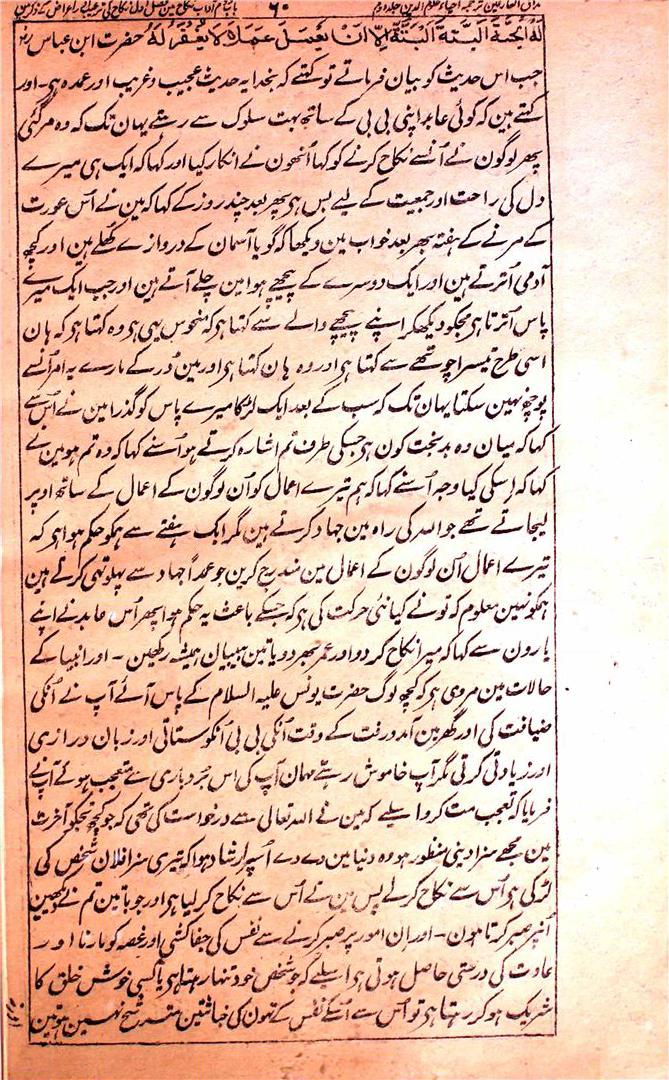 مذاق العارفین ترجمہ احیاء علوم الدین جلد دوم ۶۰ باب دوم آداب نکاح میں فصل اول نکاح کی ترغیب
لَهُ الْجَنَّةَ الْبَتَّةَ الْبَتَّةَ اِلَّا اَنْ يَّعْمَلَ عَمَلًا لَا يُغْفَرُ لَهُ حضرت ابن عباس رض
جب اس حدیث کو بیان فرماتے تو کہتے کہ بخدا یہ حدیث عجیب و غریب اور عمدہ ہی۔ اور
کہتے ہین کہ کوئی عابد اپنی بی بی کے ساتھ بہت سلوک سے رہتے یہان تک کہ وہ مرگئی
پھر لوگون نے اُنسے نکاح کرنے کو کہا اُنھون نے انکار کیا اور کہا کہ ایک ہی میرے
دل کی راحت اور جمعیت کے لیے بس ہی پھر بعد چند روز کے کہا کہ مین نے اُس عورت
کے مرنے کے ہفتہ بھر بعد خواب مین دیکھا کہ گویا آسمان کے دروازے کھلے ہین اور کچھ
آدمی اُترتے ہین اور ایک دوسرے کے پیچھے ہوا مین چلے آتے ہین اور جب ایک میرے
پاس اُترتا ہی مجکو دیکھکر اپنے پیچھے والے سے کہتا ہی کہ منحوس یہی ہی وہ کہتا ہی کہ ہان
اسی طرح تیسرا چوتھے سے کہتا ہی اور وہ ہان کہتا ہی اور مین ڈر کے مارے یہ امر اُنسے
پوچھ نہین سکتا یہان تک کہ سب کے بعد ایک لڑکا میرے پاس کو گذرا مین نے اُس سے
کہا کہ میان وہ بدبخت کون ہی جسکی طرف تم اشارہ کرتے ہو اُسنے کہا کہ وہ تم ہو مین نے
کہا کہ اِسکی کیا وجہ اُسنے کہا کہ ہم تیرے اعمال کو اُن لوگون کے اعمال کے ساتھ اوپر
لیجاتے تھے جو اللہ کی راہ مین جہاد کرتے ہین مگر ایک ہفتے سے ہمکو حکم ہوا ہی کہ
تیرے اعمال اُن لوگون کے اعمال مین مندرج کرین جو عمداً جہاد سے پہلو تہی کرتے ہین
ہمکو نہین معلوم کہ تو نے کیا نئی حرکت کی ہی کہ جسکے باعث یہ حکم ہوا پھر اُس عابد نے اپنے
یارون سے کہا کہ میرا نکاح کردو اور عمر بھر دو یا تین بیبیان ہمیشہ رکھین۔ اور انبیا کے
حالات مین مروی ہی کہ کچھ لوگ حضرت یونس علیہ السلام کے پاس آئے آپ نے اُنکی
ضیافت کی اور گھر مین آمد و رفت کے وقت اُنکی بی بی اُنکو ستاتی اور زبان درازی
اور زیادتی کرتی مگر آپ خاموش رہتے مہمان آپ کی اس بردباری سے متعجب ہوئے آپ نے
فرمایا کہ تعجب مت کرو اسلیے کہ مین نے اللہ تعالی سے درخواست کی تھی کہ جو کچھ تجکو آخرت
مین مجھے سزا دینی منظور ہو وہ دنیا مین دے دے اُسپر ارشاد ہوا کہ تیری سزا فلان شخص کی
لڑکی ہی اُس سے نکاح کرلے پس مین نے اُس سے نکاح کرلیا ہی اور جو باتین تم نے دیکھین
اُنپر صبر کرتا ہون۔ اور ان امور پر صبر کرنے سے نفس کی جفا کشی اور غصہ کو مارنا اور
عادت کی درستی حاصل ہوتی ہی اسلیے کہ جو شخص خود تنہا رہتا ہی یا کسی خوش خلق کا
شریک ہوکر رہتا ہی تو اُس سے اُسکے نفس کے تہون کی خباثتین مترشح نہین ہوتین